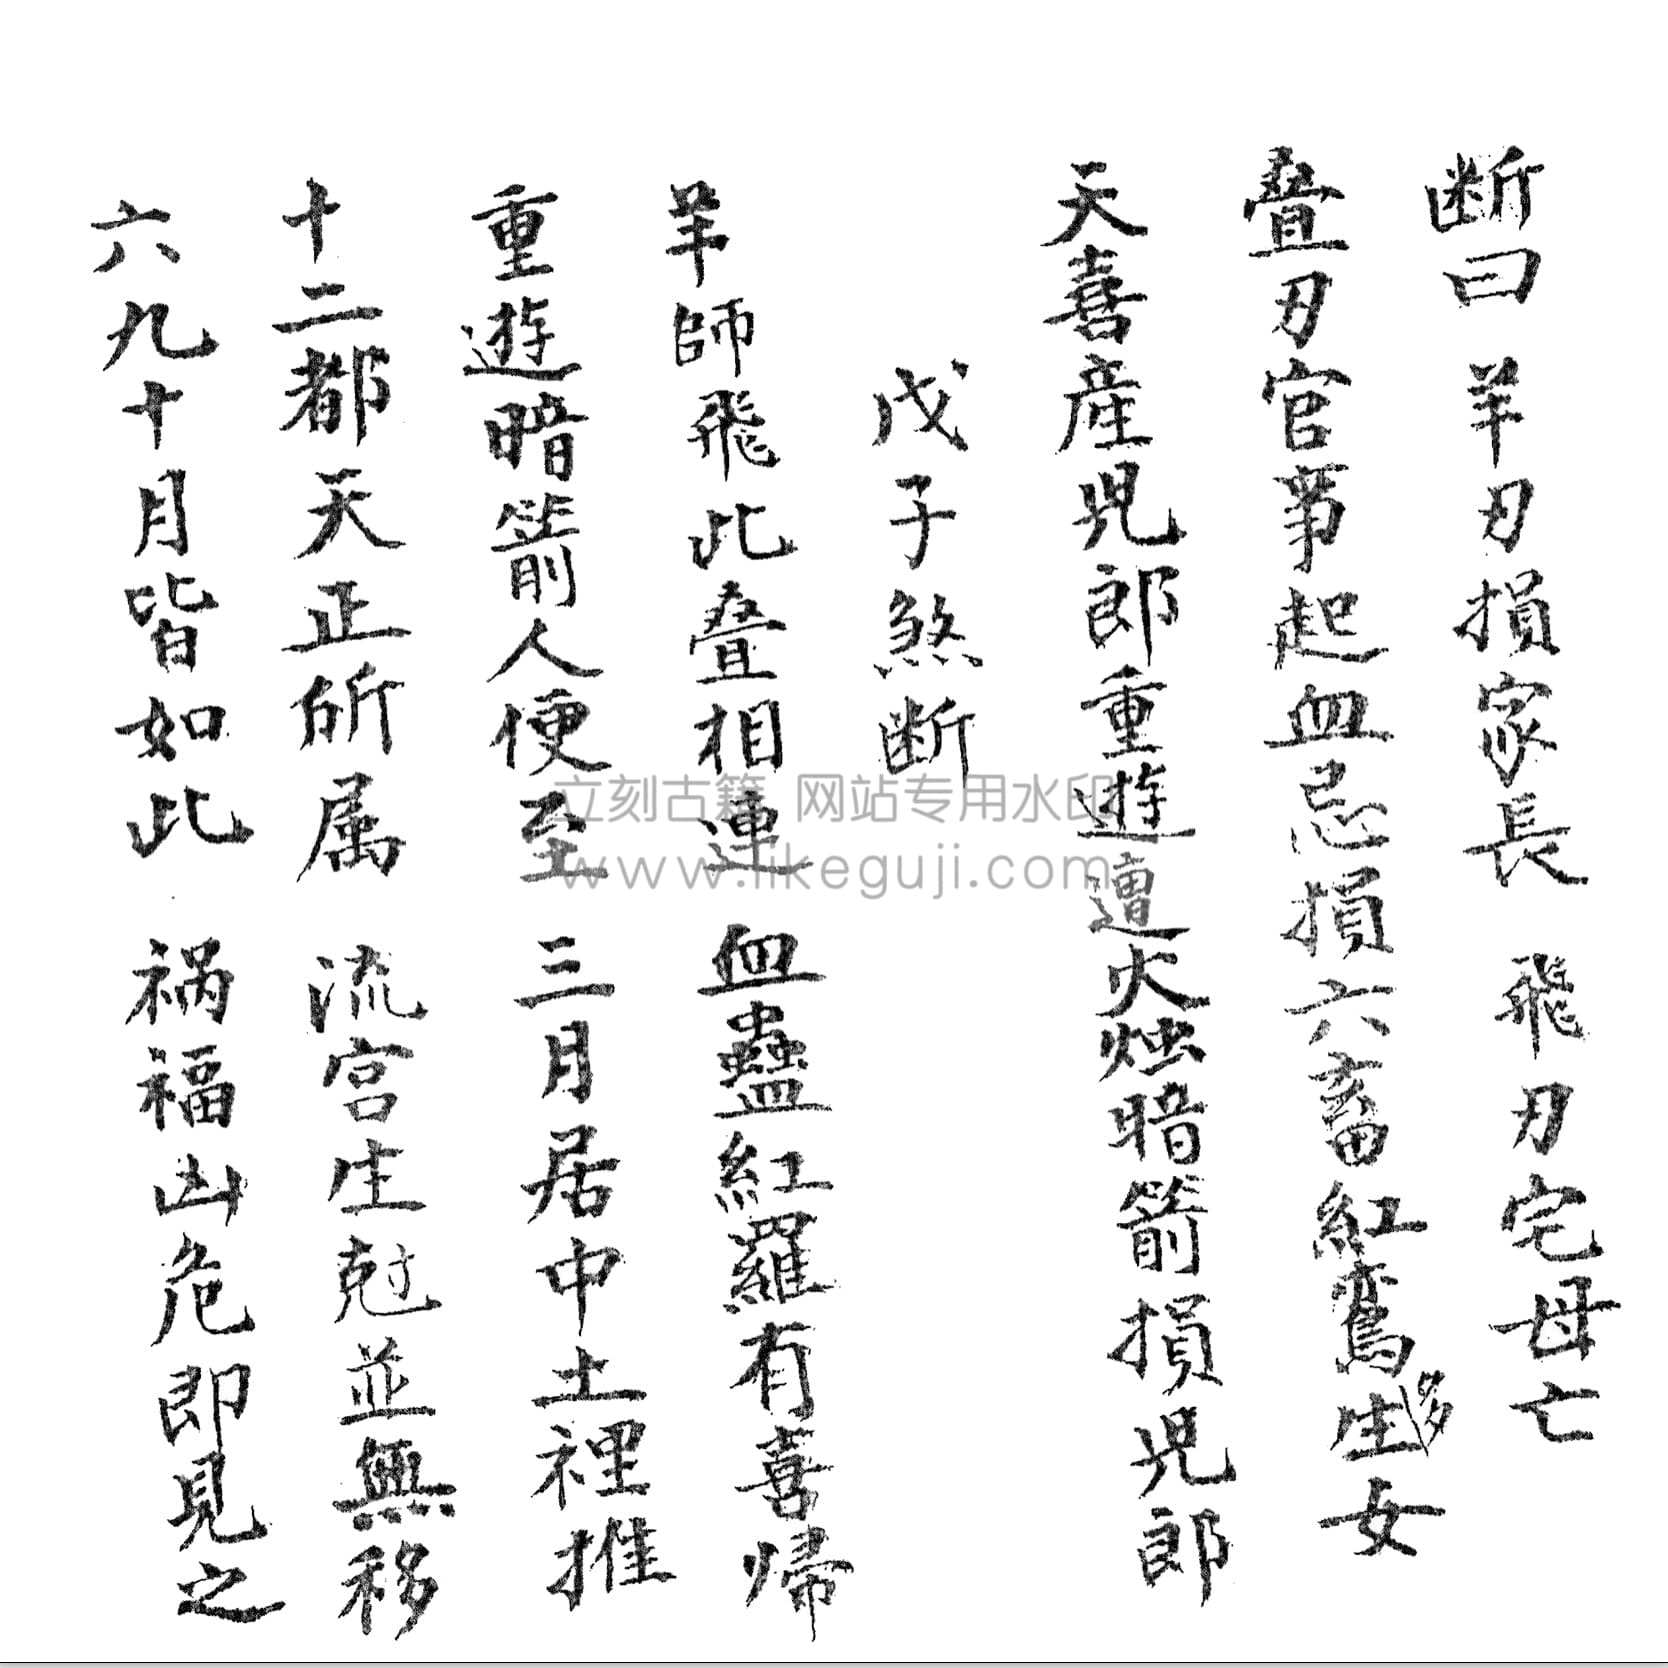 断曰 羊刃損家長 飛刃宅母亡
叠刃官事起血忌損六畜紅鸞生多女
天喜産児郎重遊遭火烛暗箭損児郎
戊子煞断
羊師飛此叠相連 血蠱紅羅有喜帰
重遊暗箭人便至 三月居中土裡推
十二都天正所属 流宫生尅並無移
六九十月皆如此 祸福凶危即見之
立刻古籍 网站专用水印
www.likeguji.com